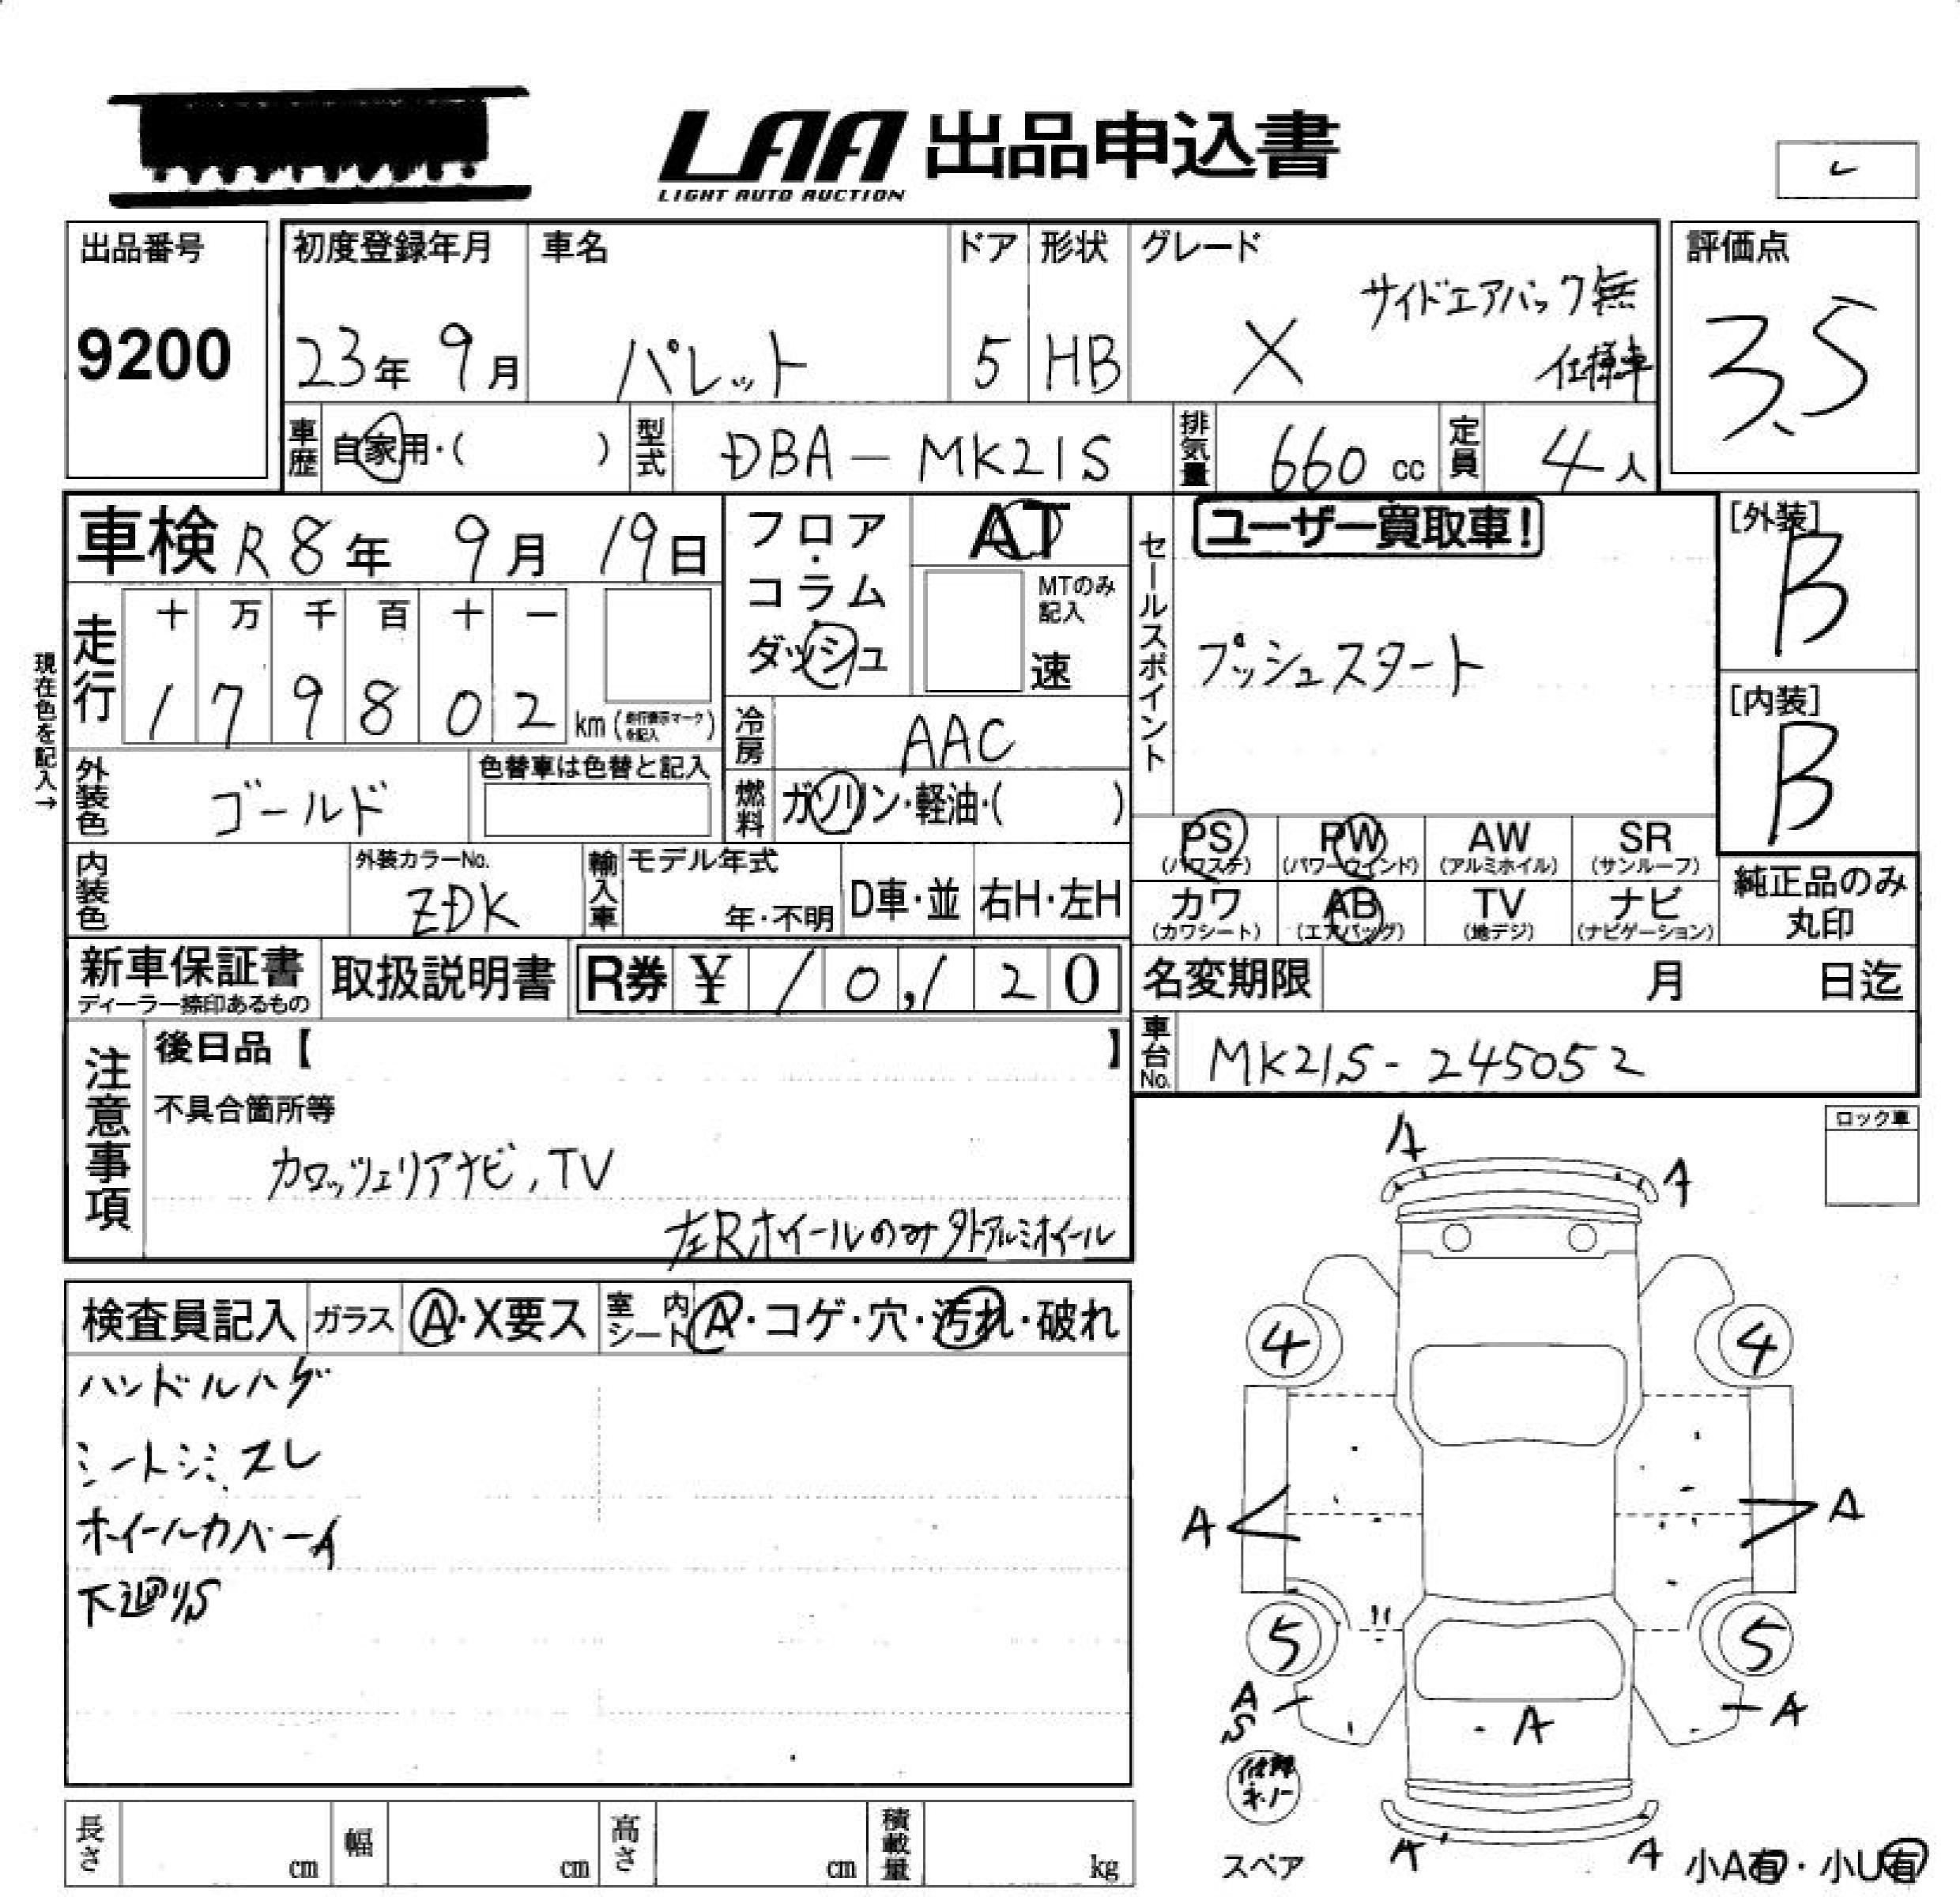 LAA 出品申込書
LIGHT AUTO AUCTION
レ
出品番号
9200
初度登録年月
23年 9月
車名
パレット
ドア
5
形状
HB
グレード
X
サイドエアバック無
仕様車
評価点
3.5
車歴 自家用・( )
型式 DBA-MK21S
排気量 660 cc
定員 4人
車検 R8年 9月 19日
フロア・コラム・ダッシュ
AT
MTのみ記入
速
セールスポイント
ユーザー買取車!
プッシュスタート
[外装]
B
[内装]
B
現在色を記入→
走行
十 万 千 百 十 一
1 7 9 8 0 2 km (走行表示マークを記入)
冷房 AAC
外装色 ゴールド
色替車は色替と記入
燃料 ガソリン・軽油・( )
PS (パワステ)
PW (パワーウインド)
AW (アルミホイル)
SR (サンルーフ)
カワ (カワシート)
AB (エアバッグ)
TV (地デジ)
ナビ (ナビゲーション)
純正品のみ
丸印
内装色
外装カラーNo.
ZDK
輸入車
モデル年式
年・不明
D車・並
右H・左H
新車保証書
ディーラー捺印あるもの
取扱説明書
R券 ¥ 10,120
名変期限 月 日迄
車台No. MK21S-245052
注意事項
後日品【 】
不具合箇所等
カロッツェリアナビ,TV
左Rホイールのみ外アルミホイール
ロック車
検査員記入
ガラス A・X要ス
室内シート A・コゲ・穴・汚れ・破れ
ハンドルハゲ
シートシミ、スレ
ホイールカバーA
下廻りS
A
A
4
4
A
A
5
5
A
S
A
A
スペア
A
A
小A有・小U有
長さ cm
幅 cm
高さ cm
積載量 kg